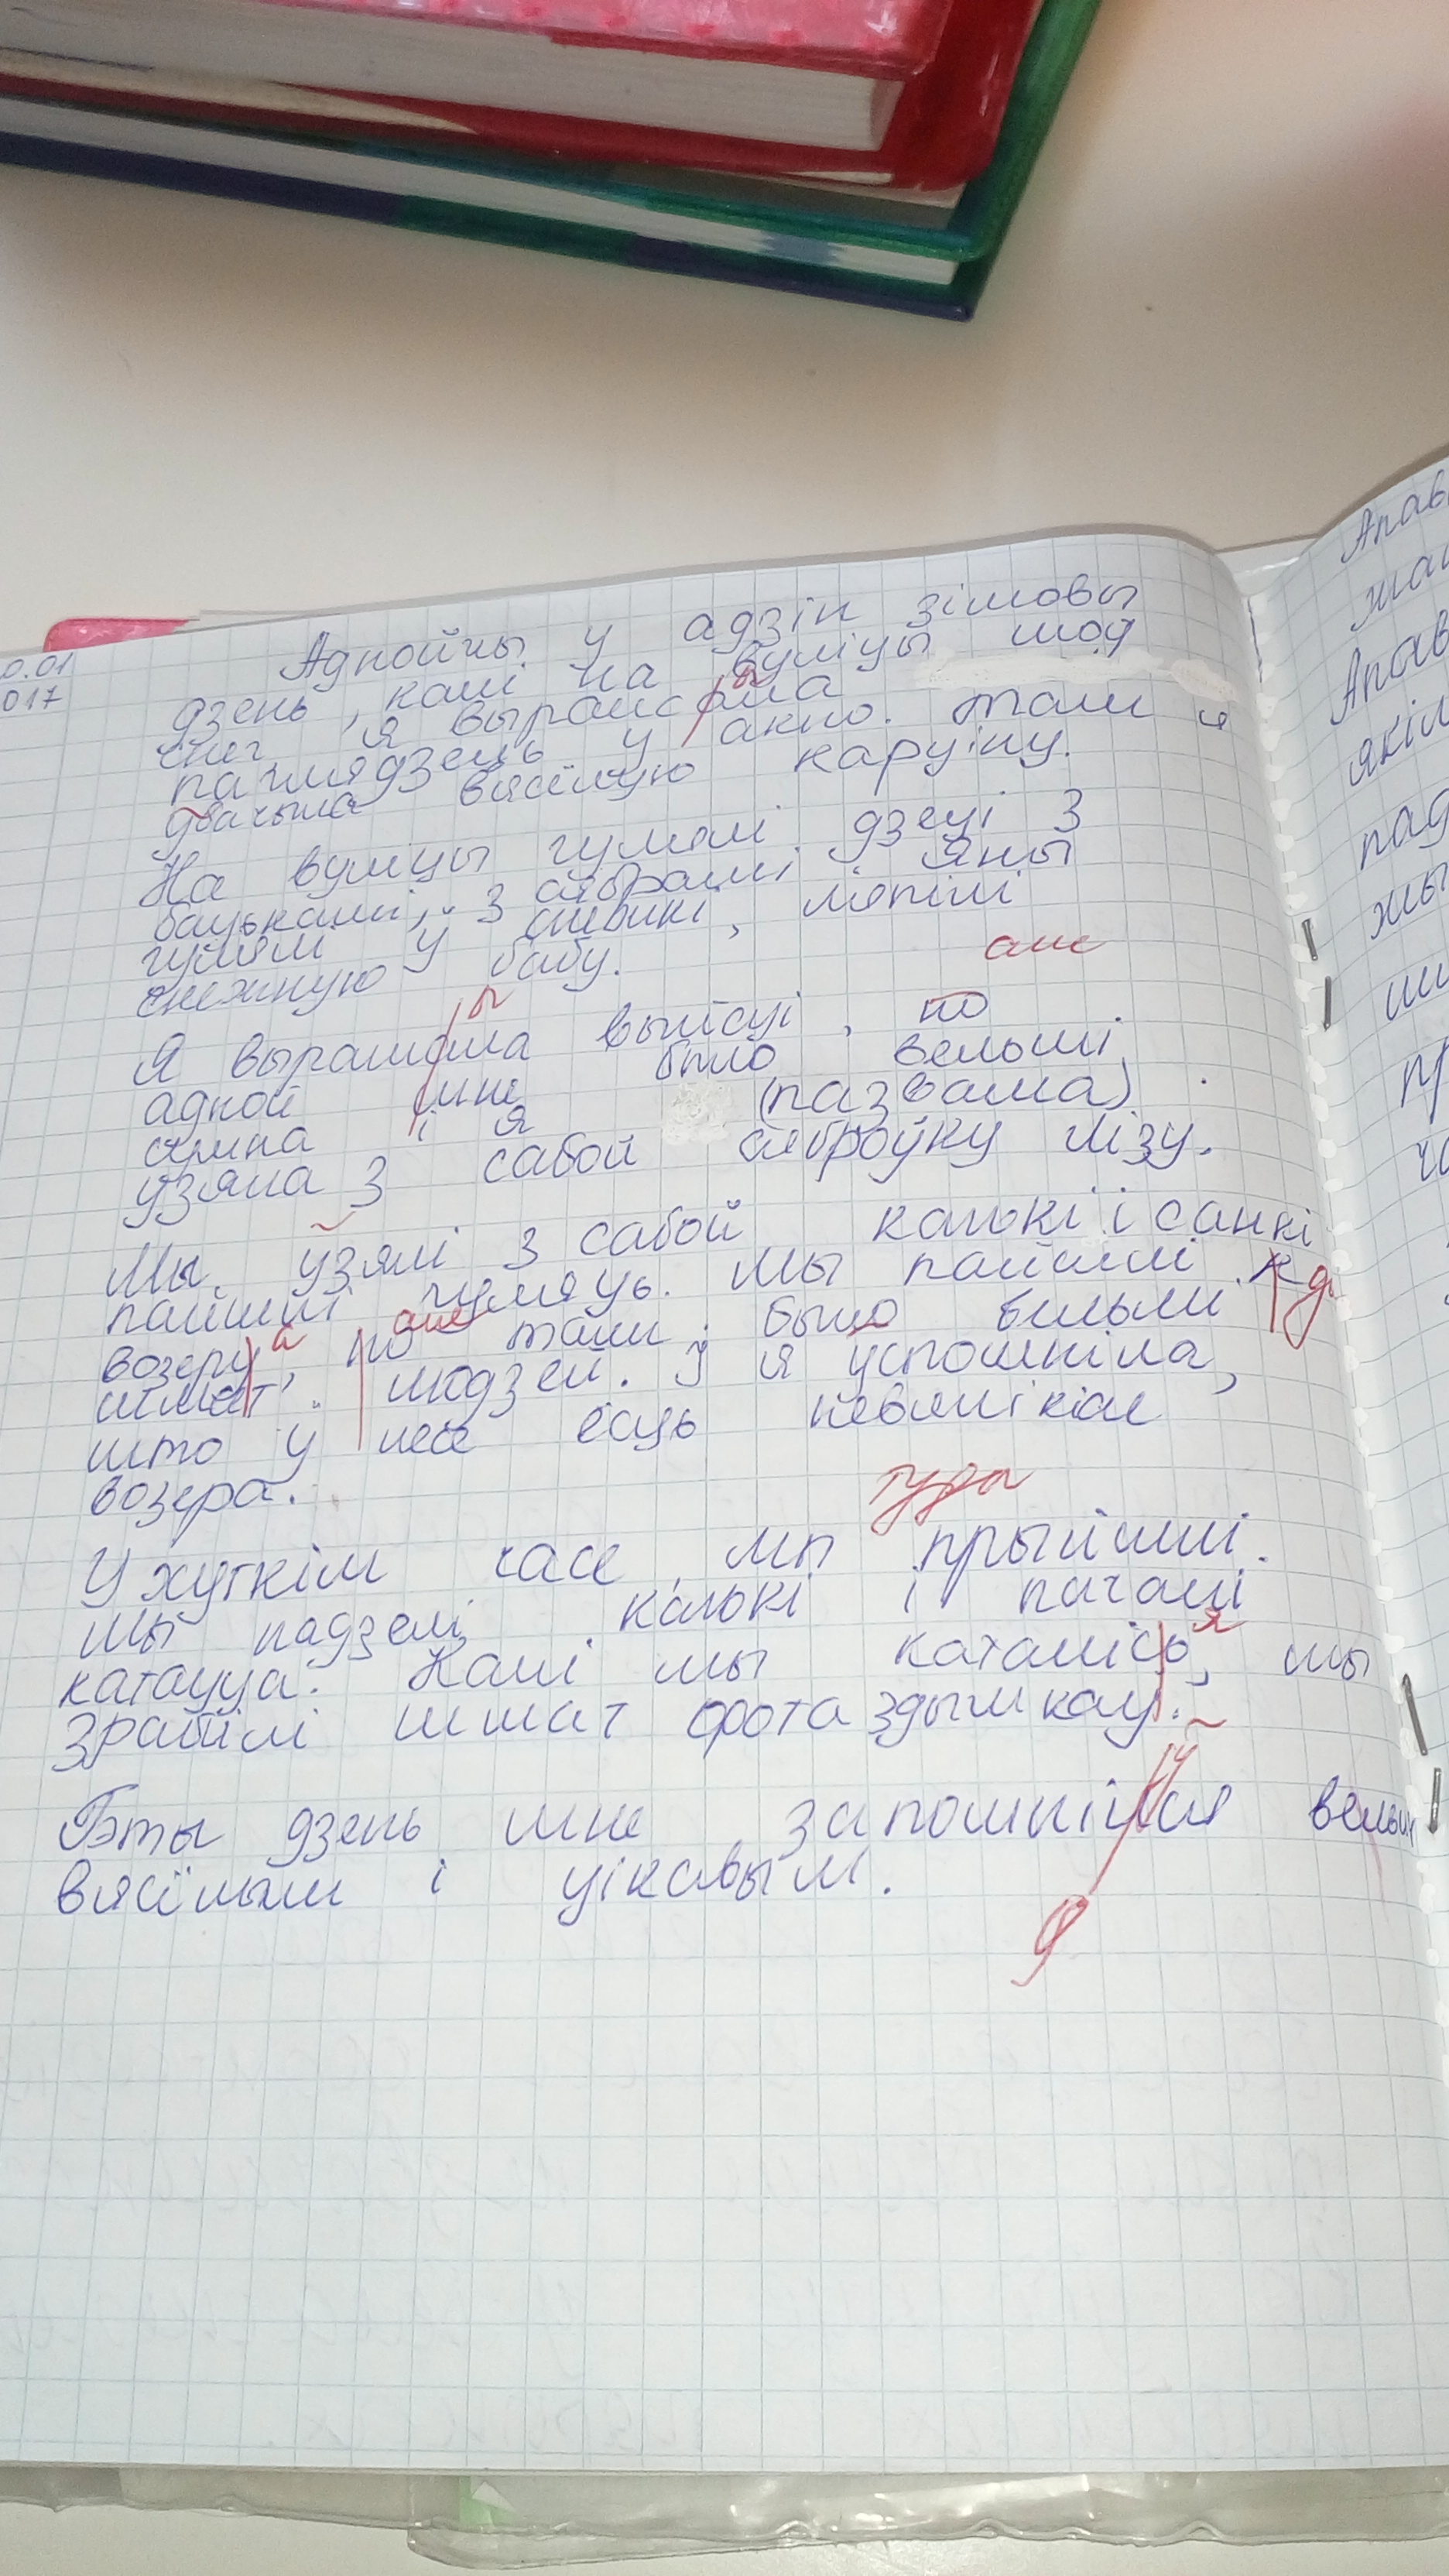 0.01
017
Аднойчы у адзін зімовы
дзень, калі на вуліцы шоў
снег, я вырашыла
паглядзець у акно. Там я
убачыла вясёлую карціну.
На вуліцы гулялі дзеці з
бацькамі, з сябрамі. Яны
гулялі у снежкі, ляпілі
снежную бабу.
але
ы
Я вырашила выйсці, но
адной мне было вельмі
сумна і я (пазвала)
узяла з сабой сяброўку Лізу.
Мы узялі з сабой канькі і санкі
пайшлі гуляць. Мы пайшлі к да
возеру а, но але там было вельмі
шмат людзей. І я успомніла,
што у лесе ёсць невялікае
возера.
туды
У хуткім часе мы прыйшлі.
Мы надзелі канькі і пачалі
катацца. Калі мы каталісь я, мы
зрабілі шмат фотаздымкау.
Гэты дзень мне запомніўся вельмі
вясёлым і цікавым.
9
Апав
Апав
якім
пад
жы